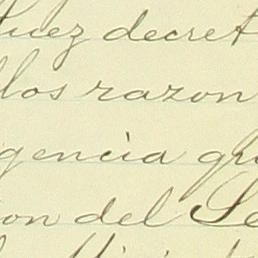 juez decret
llos razon
gencia gra
ion del Se